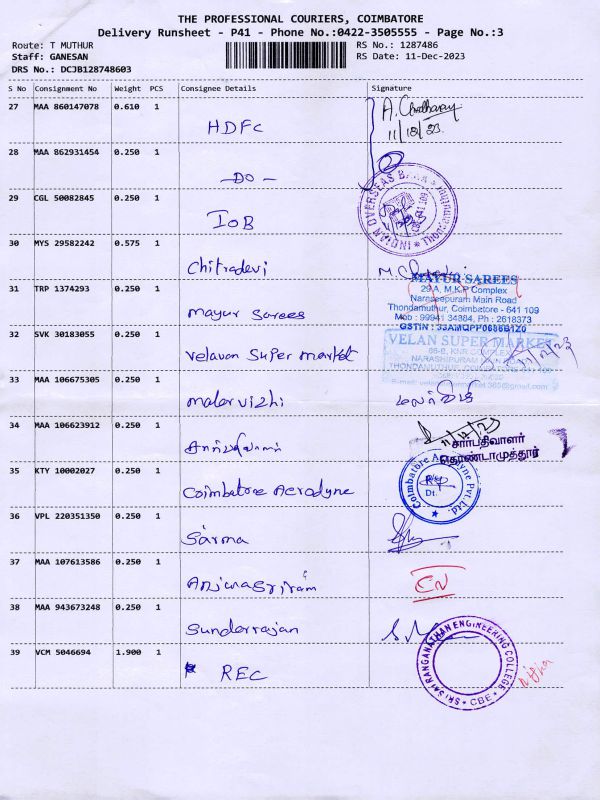 THE PROFESSIONAL COURIERS, COIMBATORE
Delivery Runsheet - P41 - Phone No.:0422-3505555 - Page No.:3
Route: T MUTHUR
RS No.: 1287486
Staff: GANESAN
RS Date: 11-Dec-2023
DRS No.: DCJB128748603
S No Consignment No Weight PCS Consignee Details Signature
27 MAA 860147078 0.610 1 HDFC
11/12/23
28 MAA 862931454 0.250 1 -DO-
29 CGL 50082845 0.250 1 IOB
INDIAN OVERSEAS BANK
30 MYS 29582242 0.575 1 Chitradevi
31 TRP 1374293 0.250 1 Mayur Sarees
MAYUR SAREES
29 A, M.K.P Complex
Naraseepuram Main Road
Thondamuthur, Coimbatore - 641 109
Mob : 99941 34884, Ph : 2618373
GSTIN : 33AMQPP0686B1Z0
32 SVK 30183055 0.250 1 Velavan Super market
VELAN SUPER MARKET
66-B, KNR COMPLEX
NARASHIPURAM MAIN ROAD
THONDAMUTHUR, COIMBATORE-641 109
33 MAA 106675305 0.250 1 malarvizhi மலர்விழி
34 MAA 106623912 0.250 1 சார்பதிவாளர்
சார்பதிவாளர்
தொண்டாமுத்தூர்
35 KTY 10002027 0.250 1 Coimbatore Aerodyne
Coimbatore Aerodyne Pvt. Ltd
Dt.
36 VPL 220351350 0.250 1 Sarma
37 MAA 107613586 0.250 1
38 MAA 943673248 0.250 1 Sunderrajan
39 VCM 5046694 1.900 1 REC
SRI SAI RANGANATHAN ENGINEERING COLLEGE
CBE